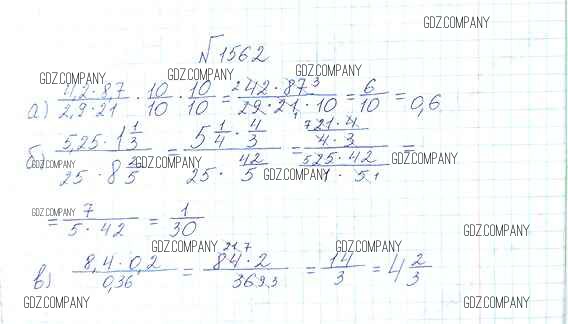 GDZ.COMPANY
№1562
GDZ.COMPANY GDZ.COMPANY GDZ.COMPANY
а) 4,2 · 8,7 / 2,9 · 21 · 10/10 · 10/10 = 42 · 87 / 29 · 21 · 10 = 6/10 = 0,6
б) 5,25 · 1 1/3 / 25 · 8 2/5 = 5 1/4 · 4/3 / 25 · 42/5 = 21 · 4 / 4 · 3 / 25 · 42 / 1 · 5 =
GDZ.COMPANY GDZ.COMPANY GDZ.COMPANY
= 7 / 5 · 42 = 1/30
GDZ.COMPANY GDZ.COMPANY
GDZ.COMPANY GDZ.COMPANY GDZ.COMPANY
в) 8,4 · 0,2 / 0,36 = 84 · 2 / 36 = 14/3 = 4 2/3
GDZ.COMPANY GDZ.COMPANY GDZ.COMPANY